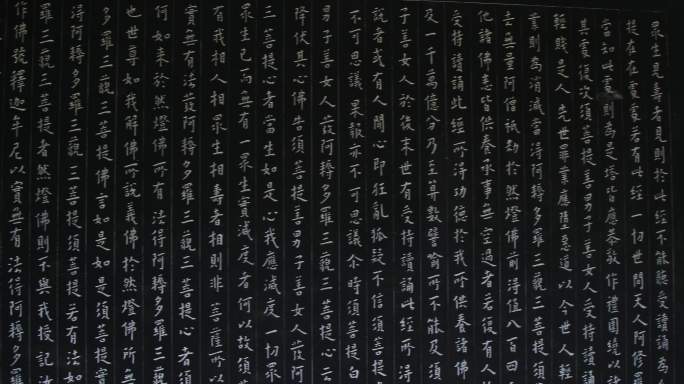 眾生見壽者見則於此經不能聽受讀誦為人
提在在處處若有此經一切世間天人阿修羅
當知此處則為是塔皆應恭敬作禮圍繞以
其處復次須菩提善男子善女人受持讀誦
輕賤是人先世罪業應墮惡道以今世人輕
業則為消滅當得阿耨多羅三藐三菩提須
去無量阿僧祇劫於然燈佛前得值八百四
他諸佛悉皆供養承事無空過者若復有人
受持讀誦此經所得功德於我所供養諸佛
及一千萬億分乃至算數譬喻所不能及須
子善女人於後末世有受持讀誦此經所得
說者或有人聞心即狂亂狐疑不信須菩提
不可思議果報亦不可思議尒時須菩提白
男子善女人發阿耨多羅三藐三菩提心云
降伏其心佛告須菩提善男子善女人發阿
三菩提心者當生如是心我應滅度一切眾
眾生已而無有一眾生實滅度者何以故須
我相人相眾生相壽者相則非菩薩所以
實無有法發阿耨多羅三藐三菩提心者須
何如來於然燈佛所有法得阿耨多羅三藐
也世尊如我解佛所說義佛於然燈佛所無
多羅三藐三菩提佛言如是如是須菩提實
得阿耨多羅三藐三菩提須菩提若有法如
羅三藐三菩提者然燈佛則不與我授記汝
作佛號釋迦牟尼以實無有法得阿耨多